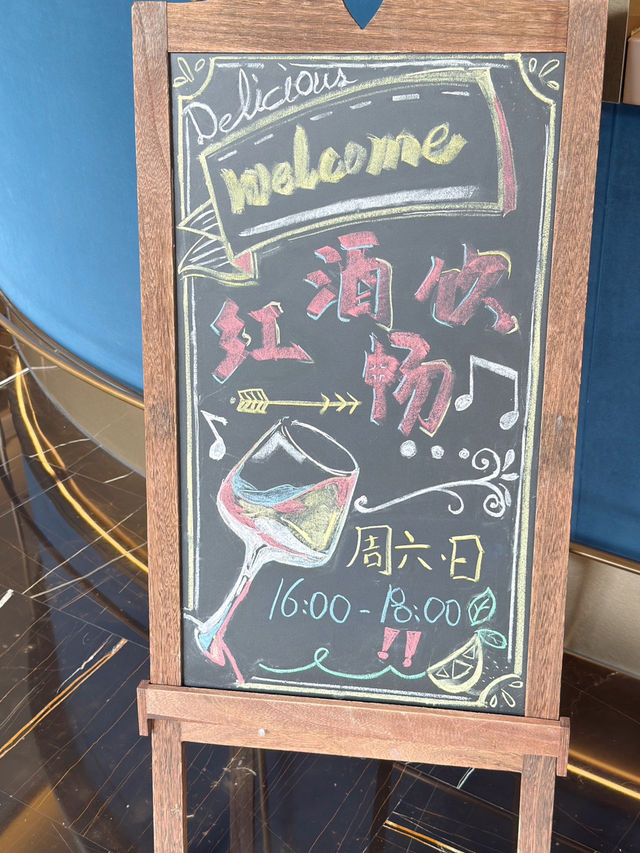 Delicious
welcome
红酒畅饮
周六·日
16:00-18:00
!!